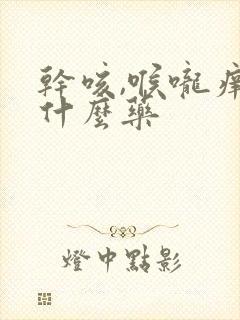 幹咳,喉嚨癢
什麼藥
燈中點影